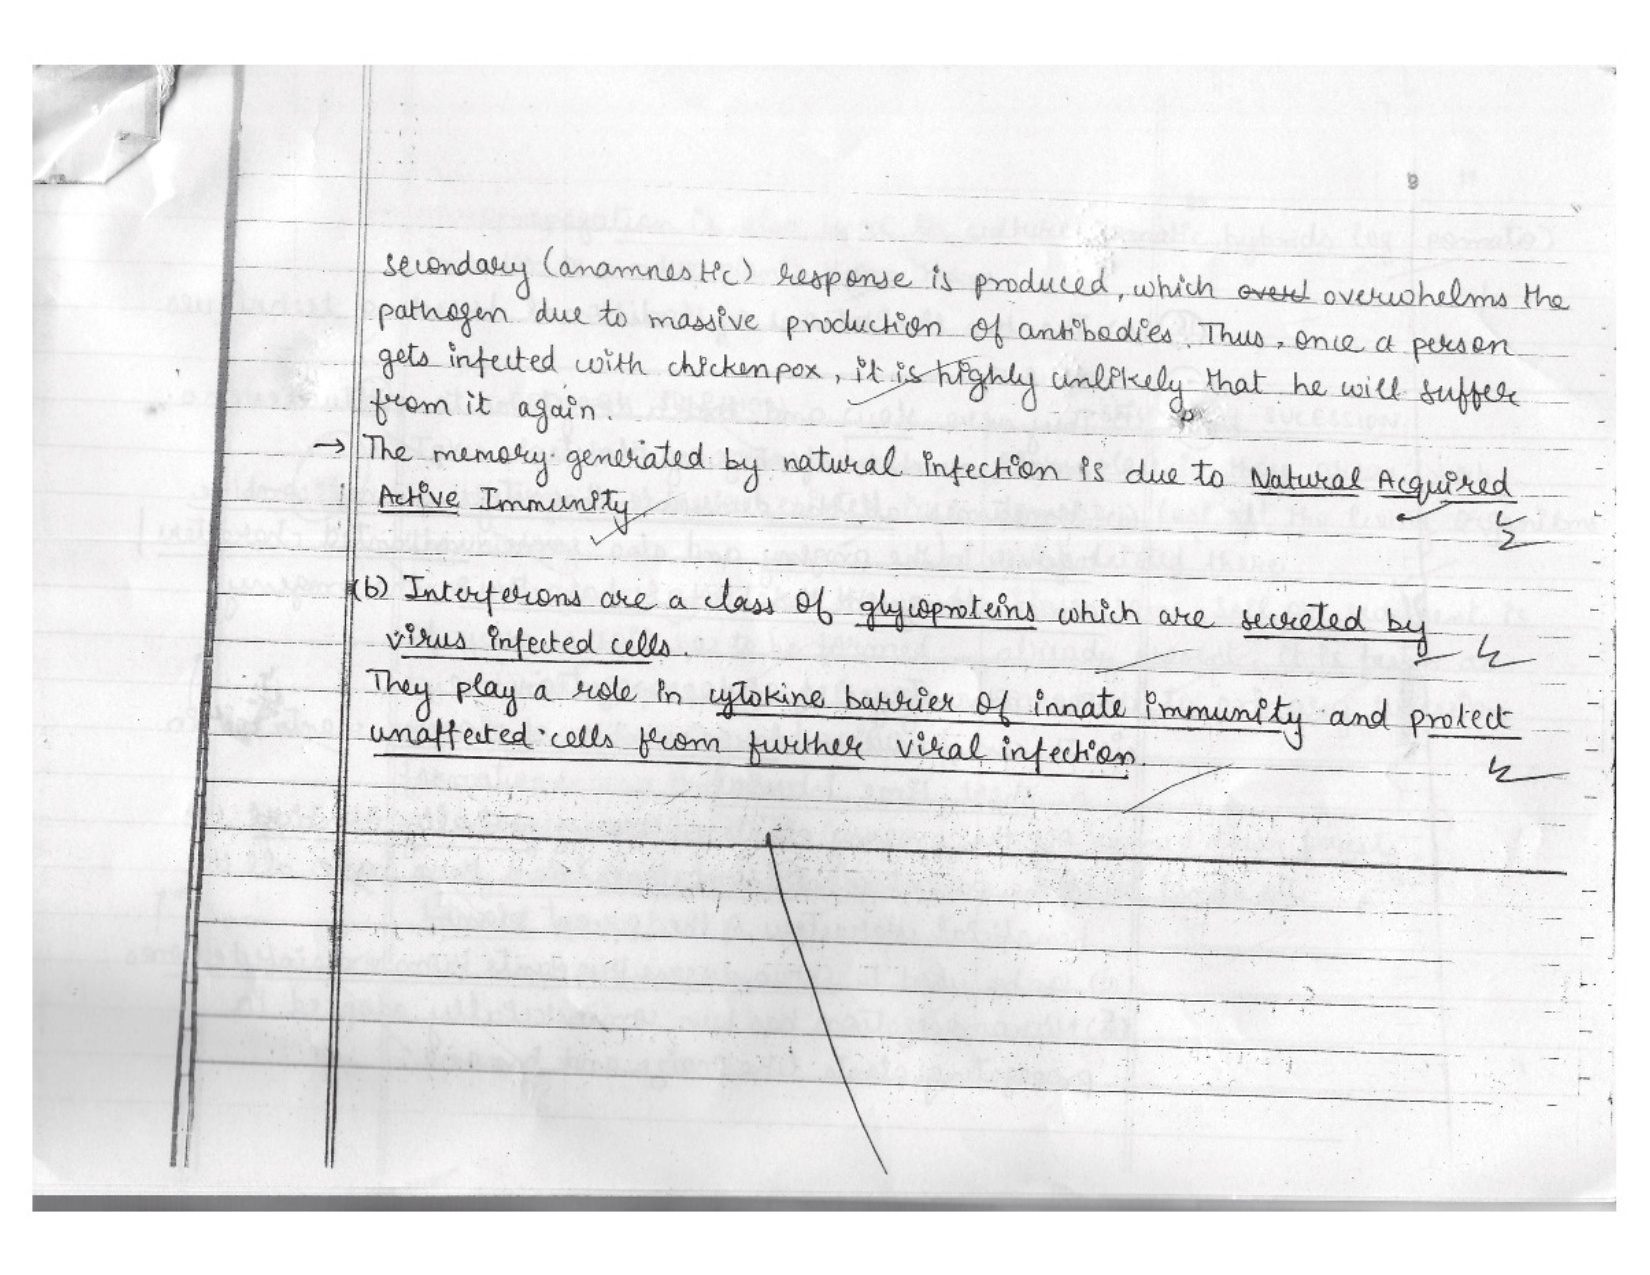 9
secondary (anamnestic) response is produced, which overl overwhelms the
pathogen due to massive production of antibodies. Thus, once a person
gets infected with chickenpox, it is highly unlikely that he will suffer
from it again.
→ The memory generated by natural infection is due to Natural Acquired
Active Immunity
(b) Interferons are a class of glycoproteins which are secreted by
virus infected cells.
They play a role in cytokine barrier of innate immunity and protect
unaffected cells from further viral infection.